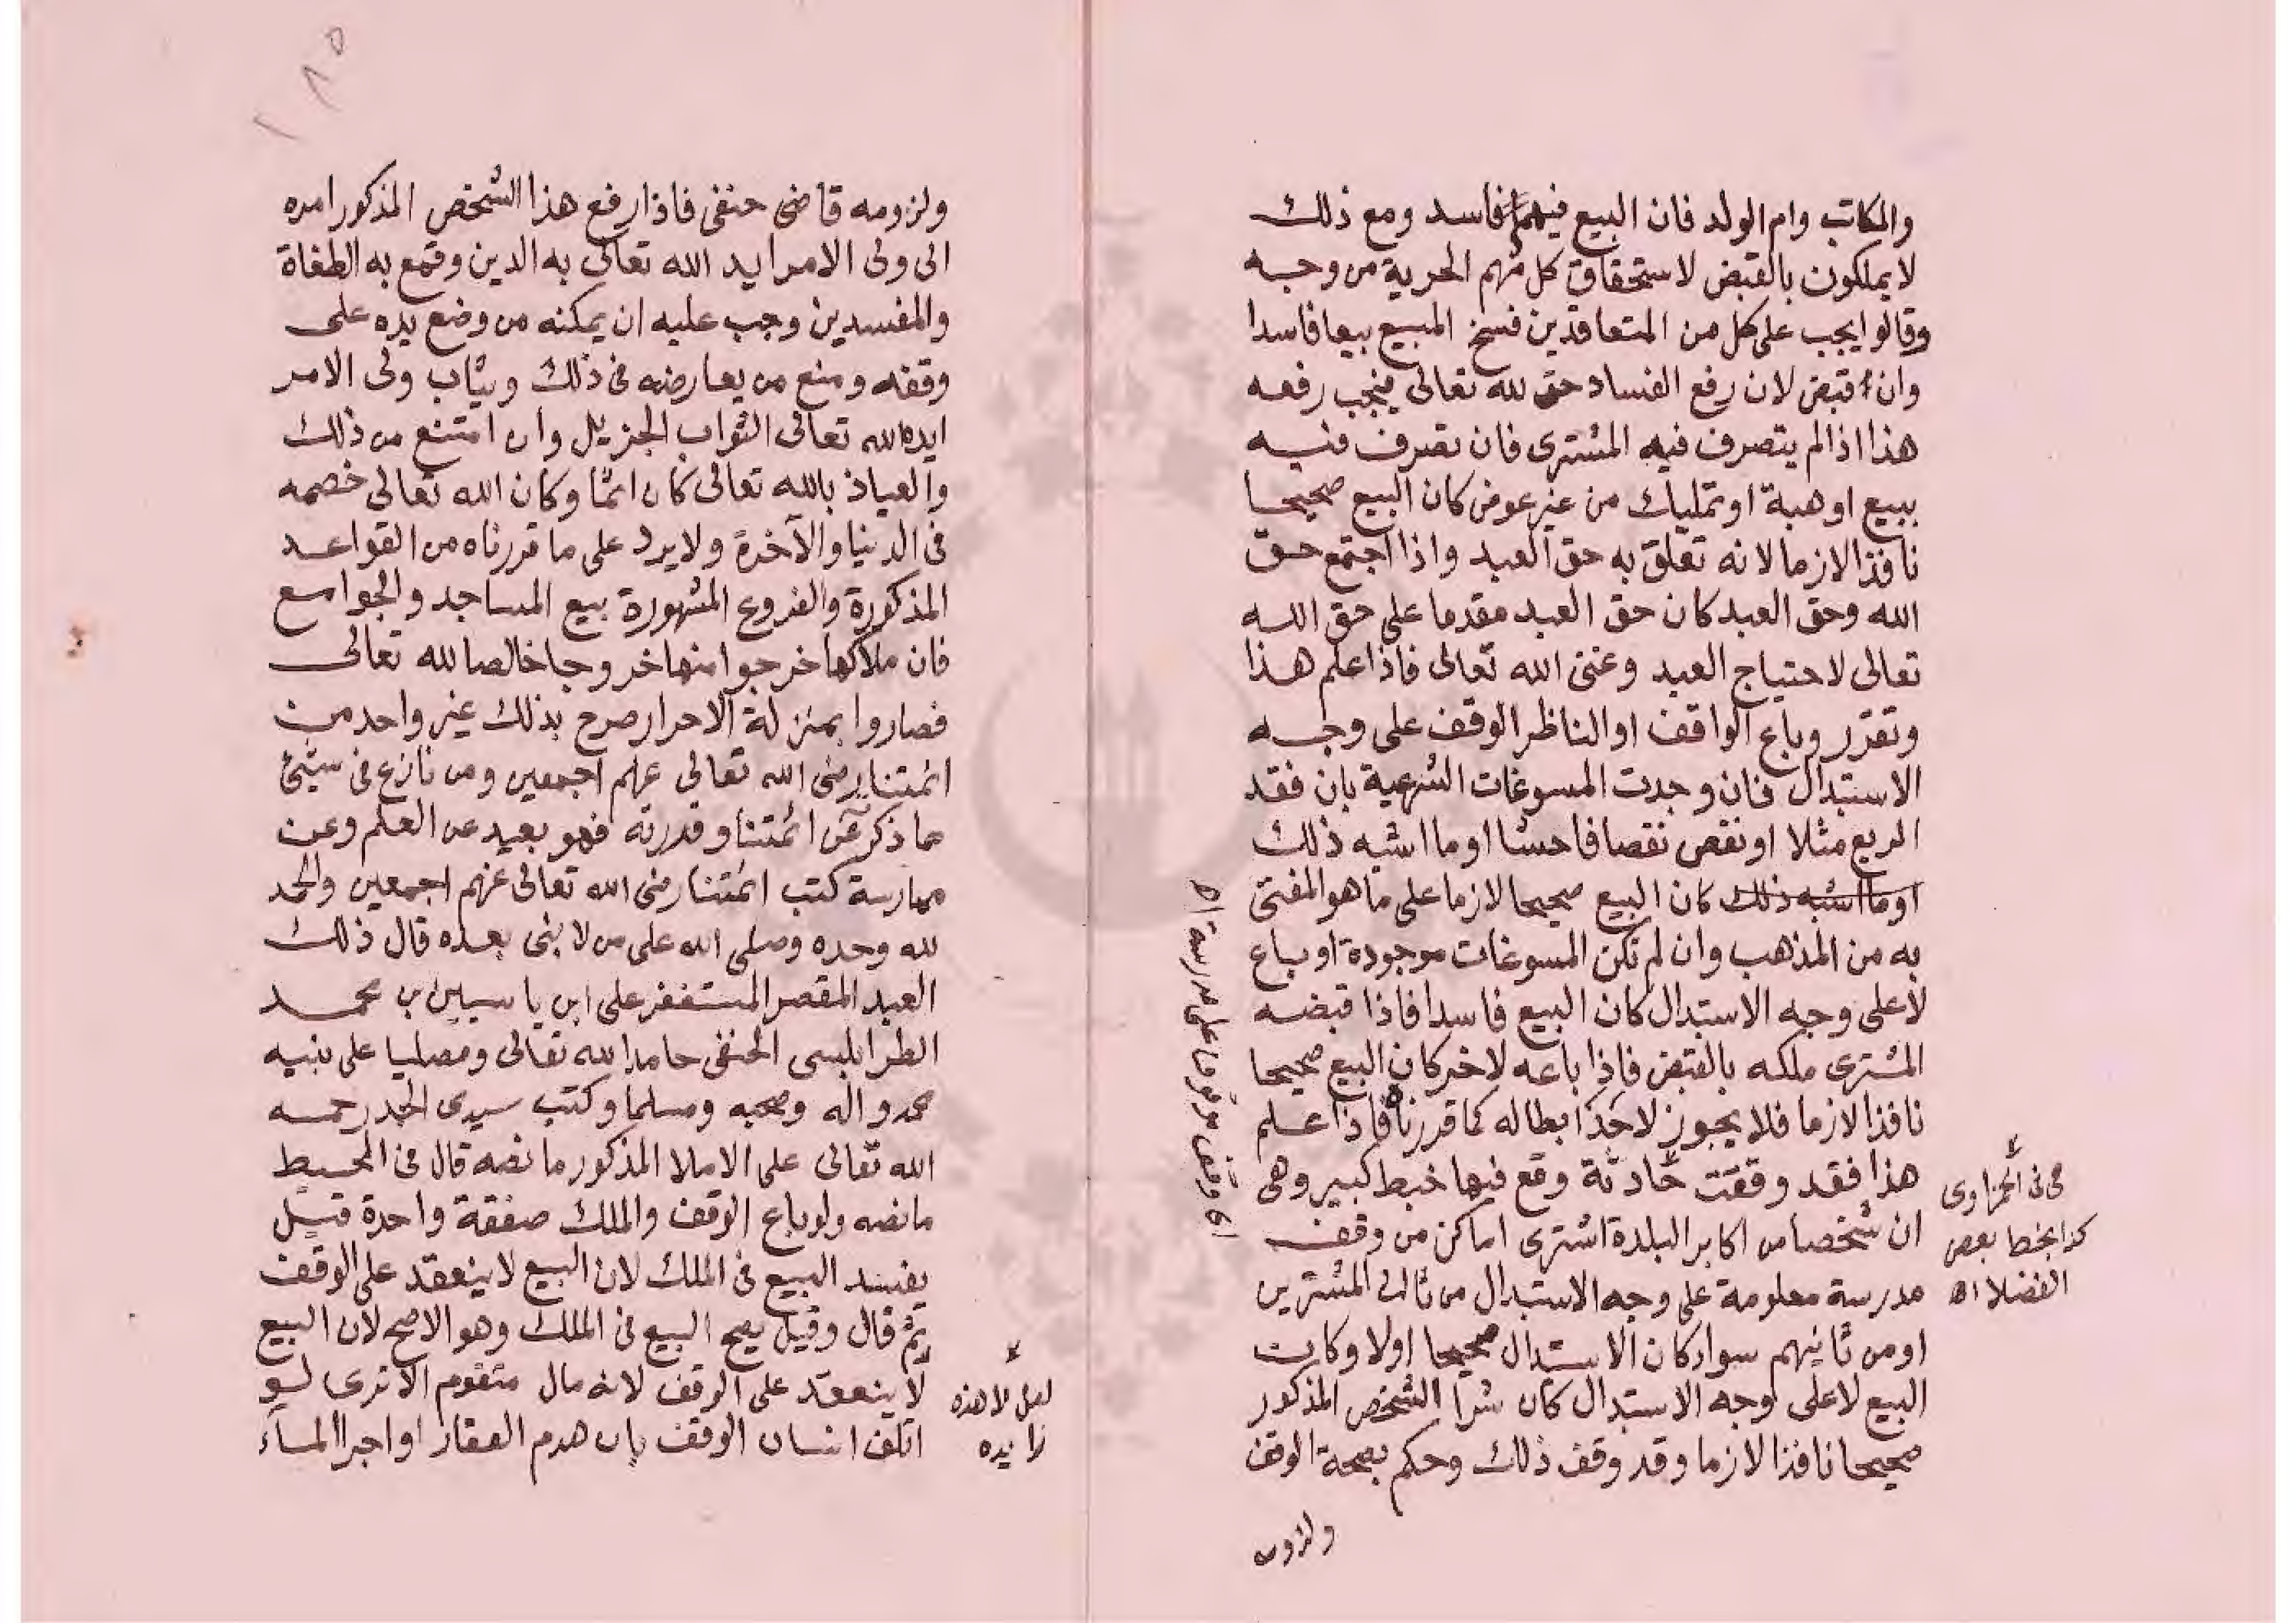 والمكاتب وام الولد فان البيع فيهم فاسد ومع ذلك
لا يملكون بالقبض لاستحقاق كل منهم الحرية من وجه
وقالوا يجب على كل من المتعاقدين فسخ المبيع بيعا فاسدا
وان قبض لان رفع الفساد حق لله تعالى فيجب رفعه
هذا اذا لم يتصرف فيه المشترى فان تصرف فيه
ببيع او هبة او تمليك من غير عوض كان البيع صحيحا
نافذا لازما لانه تعلق به حق العبد واذا اجتمع حق
الله وحق العبد كان حق العبد مقدما على حق الله
تعالى لاحتياج العبد وغنى الله تعالى فاذا علم هذا
وتقرر وباع الواقف او الناظر الوقف على وجه
الاستبدال فان وجدت المسوغات الشرعية بان فقد
الريع مثلا او نقص نقصا فاحشا او ما اشبه ذلك
او ما اشبه ذلك كان البيع صحيحا لازما على ما هو المفتى
به من المذهب وان لم تكن المسوغات موجودة او باع
لا على وجه الاستبدال كان البيع فاسدا فاذا قبضه
المشترى ملكه بالقبض فاذا باعه لاخر كان البيع صحيحا
نافذا لازما فلا يجوز لاحد ابطاله كما قررناه فاذا علم
هذا فقد وقفت حادثة وقع فيها خبط كبير وهى
ان شخصا من اكابر البلدة اشترى اماكن من وقف
مدرسة معلومة على وجه الاستبدال من ثالث المشترين
او من ثانيهم سواء كان الاستبدال صحيحا اولا وكان
البيع لا على وجه الاستبدال كان شرا الشخص المذكور
صحيحا نافذا لازما وقد وقف ذلك وحكم بصحة الوقف
ولزومه
كذا بخط بعض
الفضلا اه
على مدرسة اه
ولزومه قاضى حنفى فاذا رفع هذا الشخص المذكور امره
الى ولى الامر ايد الله تعالى به الدين وقمع به الطغاة
والمفسدين وجب عليه ان يمكنه من وضع يده على
وقفه ومنع من يعارضه فى ذلك ويثاب ولى الامر
ايده الله تعالى الثواب الجزيل وان امتنع من ذلك
والعياذ بالله تعالى كان اثما وكان الله تعالى خصمه
فى الدنيا والآخرة ولا يرد على ما قررناه من القواعد
المذكورة والفروع المشهورة بيع المساجد والجوامع
فان ملاكها خرجوا منها خروجا خالصا لله تعالى
فصاروا بمنزلة الاحرار صرح بذلك غير واحد من
ائمتنا رضى الله تعالى عنهم اجمعين ومن نازع فى شئ
مما ذكر عن ائمتنا وقدرته فهو بعيد عن العلم وعن
ممارسة كتب ائمتنا رضى الله تعالى عنهم اجمعين والحمد
لله وحده وصلى الله على من لا نبى بعده قال ذلك
العبد المقصر المستغفر على ابن ياسين بن محمد
الطرابلسى الحنفى حامدا لله تعالى ومصليا على نبيه
محمد واله وصحبه ومسلما وكتب سيدى الجد رحمه
الله تعالى على الاملا المذكور ما نصه قال فى المحيط
ما نصه ولو باع الوقف والملك صفقة واحدة قيل
يفسد البيع فى الملك لان البيع لا ينعقد على الوقف
ثم قال وقيل يصح البيع فى الملك وهو الاصح لان البيع
لا ينعقد على الوقف لانه مال متقوم الا ترى لو
اتلف انسان الوقف بان هدم العقار او اجرا الماء
لعل لا هذه
زايده
١٨٥